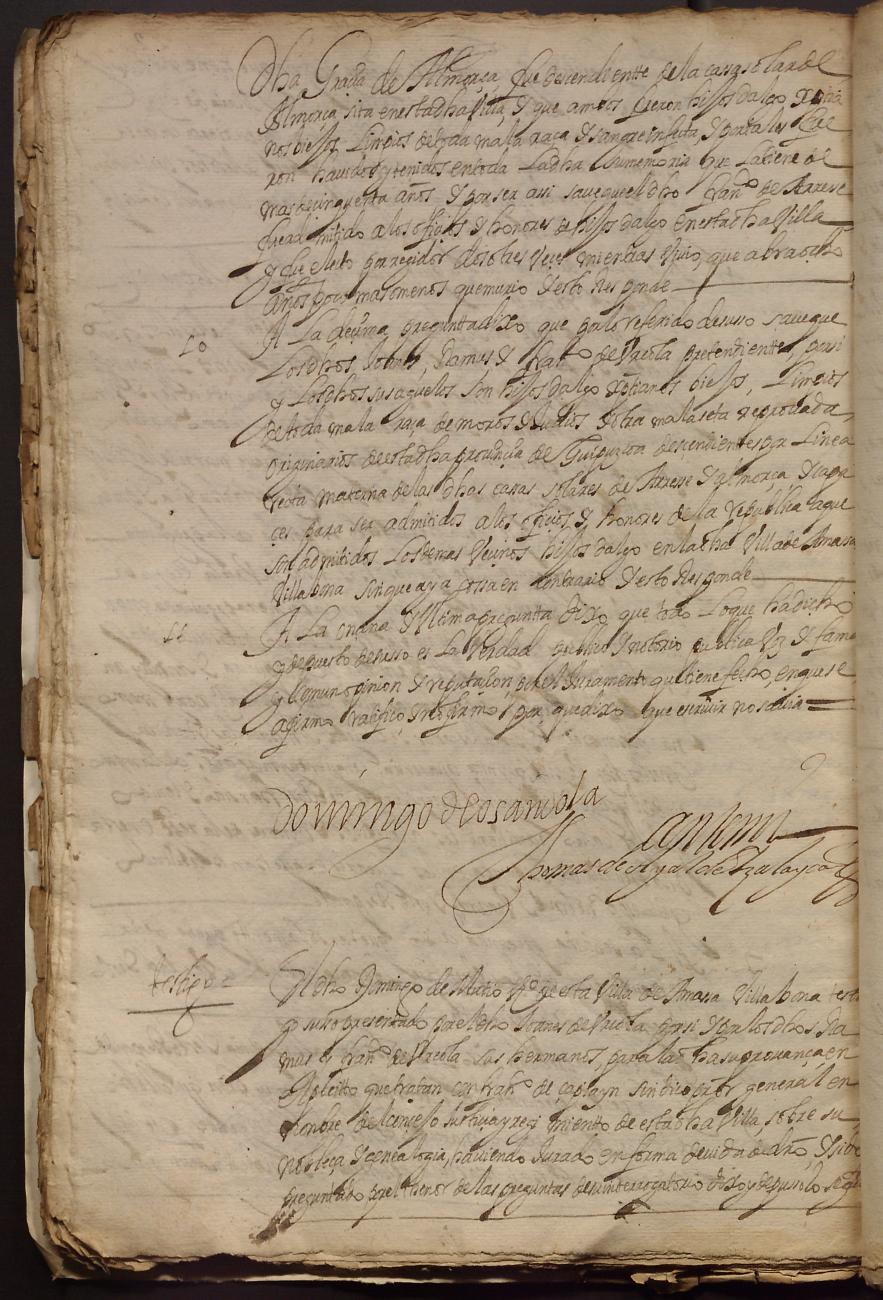 Dha Graçia de Almorça fue desçendientte de la cassa solar de
Almorça sita en esta dha villa, y que ambos fueron hijos dalgo xptia
nos viejos Limpios de toda mala raça y sangre infecta, y por tales fue
ron havidos y tenidos en toda La dha su memoria que La tiene de
mas de çinquenta años y por ser assi save que el dho fran.co de Arrese
fue admitido a los ofiçios y honores de hijos dalgo en esta dha Villa
y fue eleto por regidor dos o tres Veçes mientras Vivio, que abra ocho
años poco mas o menos que murio y esto Responde
10 A La deçima preguntta dixo que por lo referido de suso save que
Los dhos Joanes, Damus y fran.co de Vrcola pretendienttes, por si
y Los dhos sus aguelos son hijos dalgo xptianos viejos, Limpios
de toda mala raça de moros y Judios y otra mala seta reprovada,
originarios de esta dha provinçia de Guipuzcoa desçendientes por Linea
recta materna de las dhas casas solares de Arrese y almorça, y capa
çes para ser admitidos a los ofiçios y honores de la republica a que
son admitidos Los demas Veçinos hijos dalgo en la dha Villa de Amasa
Villabona sin que aya cossa en contrario y esto Responde
11 A La onçena y Vltima preguntta dixo que todo Lo que ha dicho
y depuesto de suso es La Verdad publico y notorio publica Voz y fama
y Comun opinion y reputaçion so el Juramento que tiene fecho, en que se
afirmo ratifico, y no firmo por que dixo que escrivir no savia
Domingo de
Ante mi
Thomas de
Testigo 2
El dho Domingo de V.o de esta Villa de Amasa Villabona testi
go suso presentado por el dho Joanes de Vrcola por si y por los dhos Da
mus y fran.co de Vrcola sus hermanos, para la dha su provança en
el pleitto que tratan con fran.co de sindico pror general en
nonbre del conçejo Justiçia y regimiento de esta dha Villa, sobre su
nobleça y genealogia, haviendo Jurado en forma devida de dro, y siendo
preguntado por el thenor de las preguntas del interrogatorio dixo y depusso lo sigte